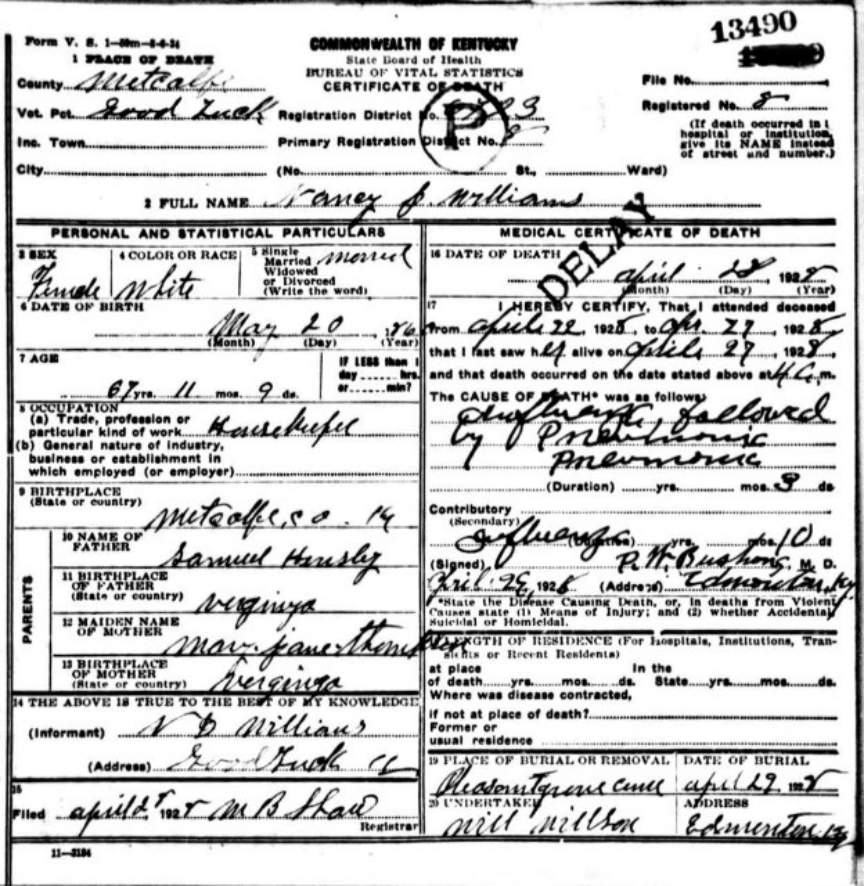 13490
Form V. S. 1-50m-8-6-24
COMMONWEALTH OF KENTUCKY
State Board of Health
BUREAU OF VITAL STATISTICS
CERTIFICATE OF DEATH
1 PLACE OF DEATH
County Metcalfe
File No.
Vot. Pct. Good Luck Registration District No.
Registered No. 8
P
Inc. Town Primary Registration District No.
(If death occurred in
hospital or institution,
give its NAME instead
of street and number.)
City (No. St., Ward)
2 FULL NAME Nancy J. Williams
DELAY
PERSONAL AND STATISTICAL PARTICULARS
3 SEX Female
4 COLOR OR RACE White
5 Single
Married
Widowed
or Divorced
(Write the word)
married
6 DATE OF BIRTH
May 20
(Month) (Day) (Year)
7 AGE
67 yrs. 11 mos. 9 ds.
IF LESS than 1
day hrs.
or min?
8 OCCUPATION
(a) Trade, profession or
particular kind of work Housekeeper
(b) General nature of Industry,
business or establishment in
which employed (or employer)
9 BIRTHPLACE
(State or country)
Metcalfe, co. Ky
PARENTS
10 NAME OF
FATHER
Samuel
11 BIRTHPLACE
OF FATHER
(State or country)
verginya
12 MAIDEN NAME
OF MOTHER
mary jane
13 BIRTHPLACE
OF MOTHER
(State or country)
verginya
14 THE ABOVE IS TRUE TO THE BEST OF MY KNOWLEDGE
(Informant) Williams
(Address) Good Luck Ky
15
Filed april 28 1928 M B Shaw
Registrar
11-3184
MEDICAL CERTIFICATE OF DEATH
16 DATE OF DEATH
april 28 1928
(Month) (Day) (Year)
17 I HEREBY CERTIFY, That I attended deceased
from april 22, 1928, to Apr. 27, 1928
that I last saw her alive on april 27, 1928
and that death occurred on the date stated above at 4 a.m.
The CAUSE OF DEATH* was as follows:
Influenza followed
by Pneumonia
Pneumonia
(Duration) yrs. mos. 3 ds
Contributory
(Secondary)
Influenza
(Duration) yrs. mos. 10 ds
(Signed) P. W. Bushong, M. D.
April 29, 1928 (Address) Edmonton, Ky
*State the Disease Causing Death, or, in deaths from Violent
Causes state (1) Means of Injury; and (2) whether Accidental,
Suicidal or Homicidal.
LENGTH OF RESIDENCE (For Hospitals, Institutions, Tran-
sients or Recent Residents)
at place In the
of death yrs. mos. ds. State yrs. mos. ds.
Where was disease contracted,
if not at place of death?
Former or
usual residence
19 PLACE OF BURIAL OR REMOVAL
Pleasantgrove cem
DATE OF BURIAL
april 29 1928
20 UNDERTAKER
Will Willson
ADDRESS
Edmonton Ky